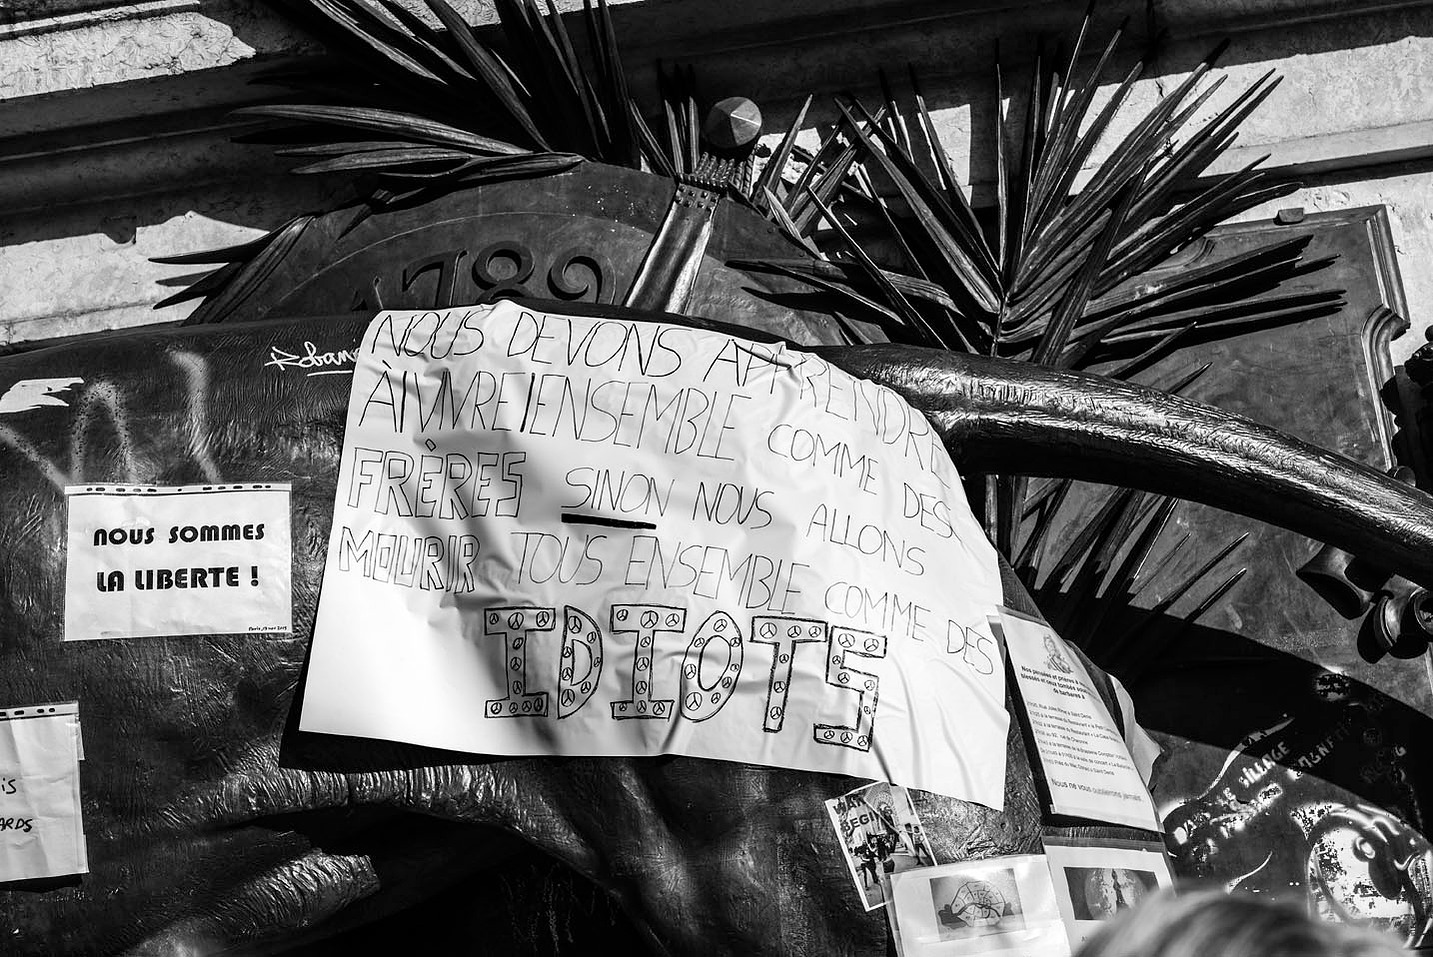 1789
Roban
NOUS DEVONS APPRENDRE
À VIVRE ENSEMBLE COMME DES
FRÈRES SINON NOUS ALLONS
MOURIR TOUS ENSEMBLE COMME DES
IDIOTS
NOUS SOMMES
LA LIBERTE !
IS
ARDS
Nos pensées et prières à nos
blessés et ceux tombés sous
de barbares à
Nous ne vous oublierons jamais.
WAR
BEGINS